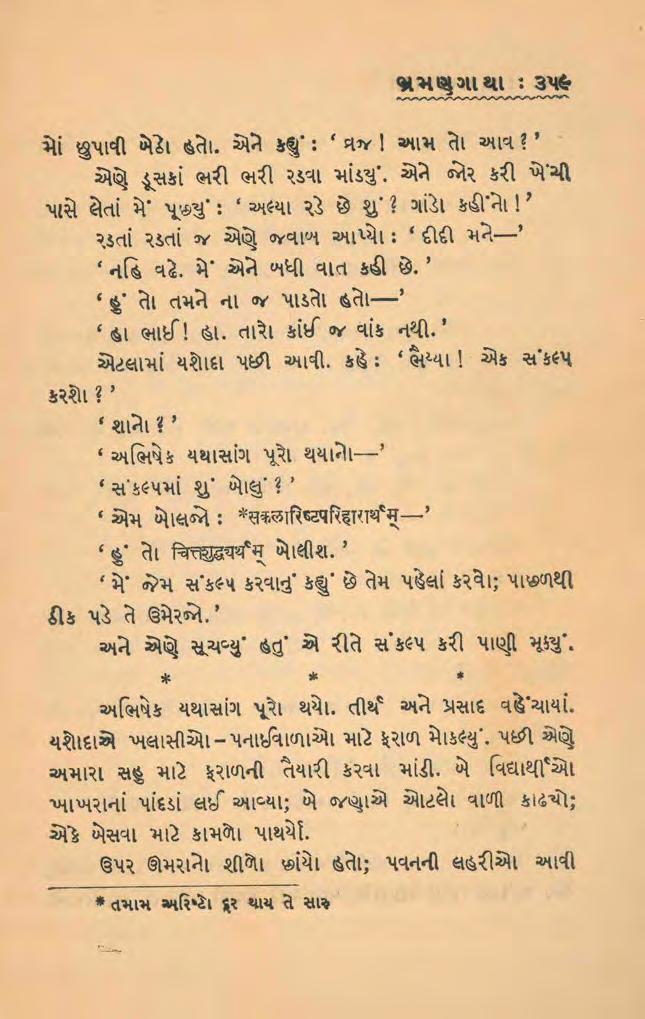 ભ્રમણગાથા : ૩૫૯
મોં છુપાવી બેઠો હતો. એને કહ્યું : ‘ વ્રજ ! આમ તો આવ ? ’
એણે ડૂસકાં ભરી ભરી રડવા માંડ્યું. એને જોર કરી ખેંચી
પાસે લેતાં મેં પૂછ્યું : ‘ અલ્યા રડે છે શું ? ગાંડો કહીંનો ! ’
રડતાં રડતાં જ એણે જવાબ આપ્યો : ‘ દીદી મને—’
‘ નહિ વઢે. મેં એને બધી વાત કહી છે. ’
‘ હું તો તમને ના જ પાડતો હતો—’
‘ હા ભાઈ ! હા. તારો કાંઈ જ વાંક નથી. ’
એટલામાં યશોદા પછી આવી. કહે : ‘ ભૈય્યા ! એક સંકલ્પ
કરશો ? ’
‘ શાનો ? ’
‘ અભિષેક યથાસાંગ પૂરો થયાનો—’
‘ સંકલ્પમાં શું બોલું ? ’
‘ એમ બોલજો : *सकलारिष्टपरिहारार्थम्—’
‘ હું તો चित्तशुद्धयर्थम् બોલીશ. ’
‘ મેં જેમ સંકલ્પ કરવાનું કહ્યું છે તેમ પહેલાં કરવો; પાછળથી
ઠીક પડે તે ઉમેરજો. ’
અને એણે સૂચવ્યું હતું એ રીતે સંકલ્પ કરી પાણી મૂક્યું.
* * *
અભિષેક યથાસાંગ પૂરો થયો. તીર્થ અને પ્રસાદ વહેંચાયાં.
યશોદાએ ખલાસીઓ – પનાઈવાળાઓ માટે ફરાળ મોકલ્યું. પછી એણે
અમારા સહુ માટે ફરાળની તૈયારી કરવા માંડી. બે વિદ્યાર્થીઓ
ખાખરાનાં પાંદડાં લઈ આવ્યા; બે જણાએ ઓટલો વાળી કાઢ્યો;
એકે બેસવા માટે કામળો પાથર્યો.
ઉપર ઊમરાનો શીળો છાંયો હતો; પવનની લહરીઓ આવી
* તમામ અરિષ્ટો દૂર થાય તે સારુ